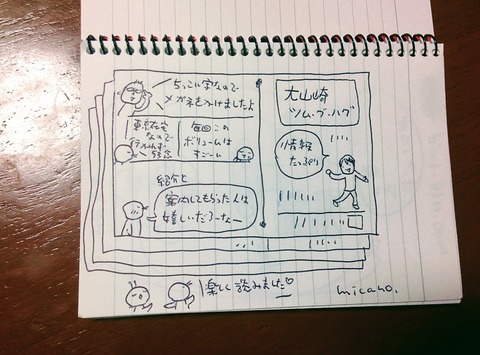 ちっこい字なので
メガネをつけましたよ
東京在宅
なので
行かれず
残念
毎回この
ボリュームは
すごーい
紹介と
案内してもらった人は
嬉しいだろーなー
大山崎
ツム・ブ・ハグ
情報
たっぷり
楽しく読みました♡
micaho.